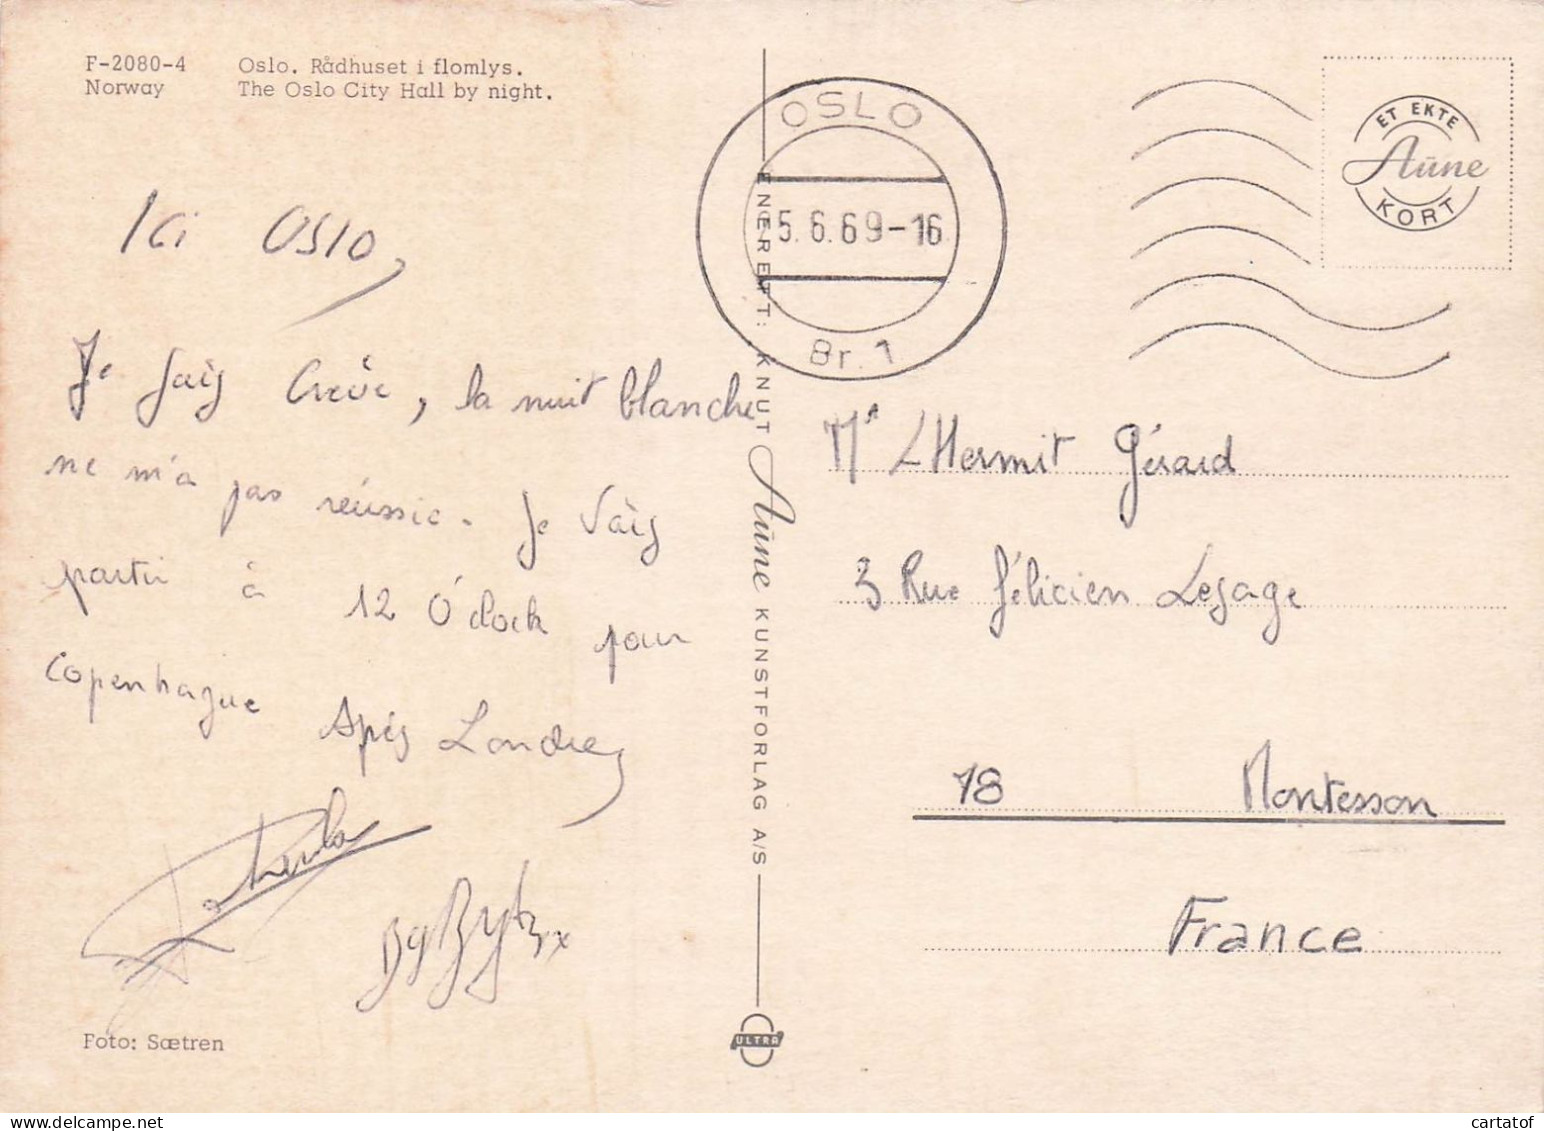 F-2080-4 Oslo. Rådhuset i flomlys.
Norway The Oslo City Hall by night.
Ici OSlO,
Je suis crevé, la nuit blanche
ne m'a pas réussie. Je vais
partir à 12 O'clock pour
Copenhague Après Londres
Foto: Sætren
OSLO
5.6.69-16
Br. 1
ENERETT: KNUT Aūne KUNSTFORLAG A/S
ULTRA
ET EKTE
Aūne
KORT
Mr L'Hermit Gérard
3 Rue Félicien Lesage
78 Montesson
France
cartatof